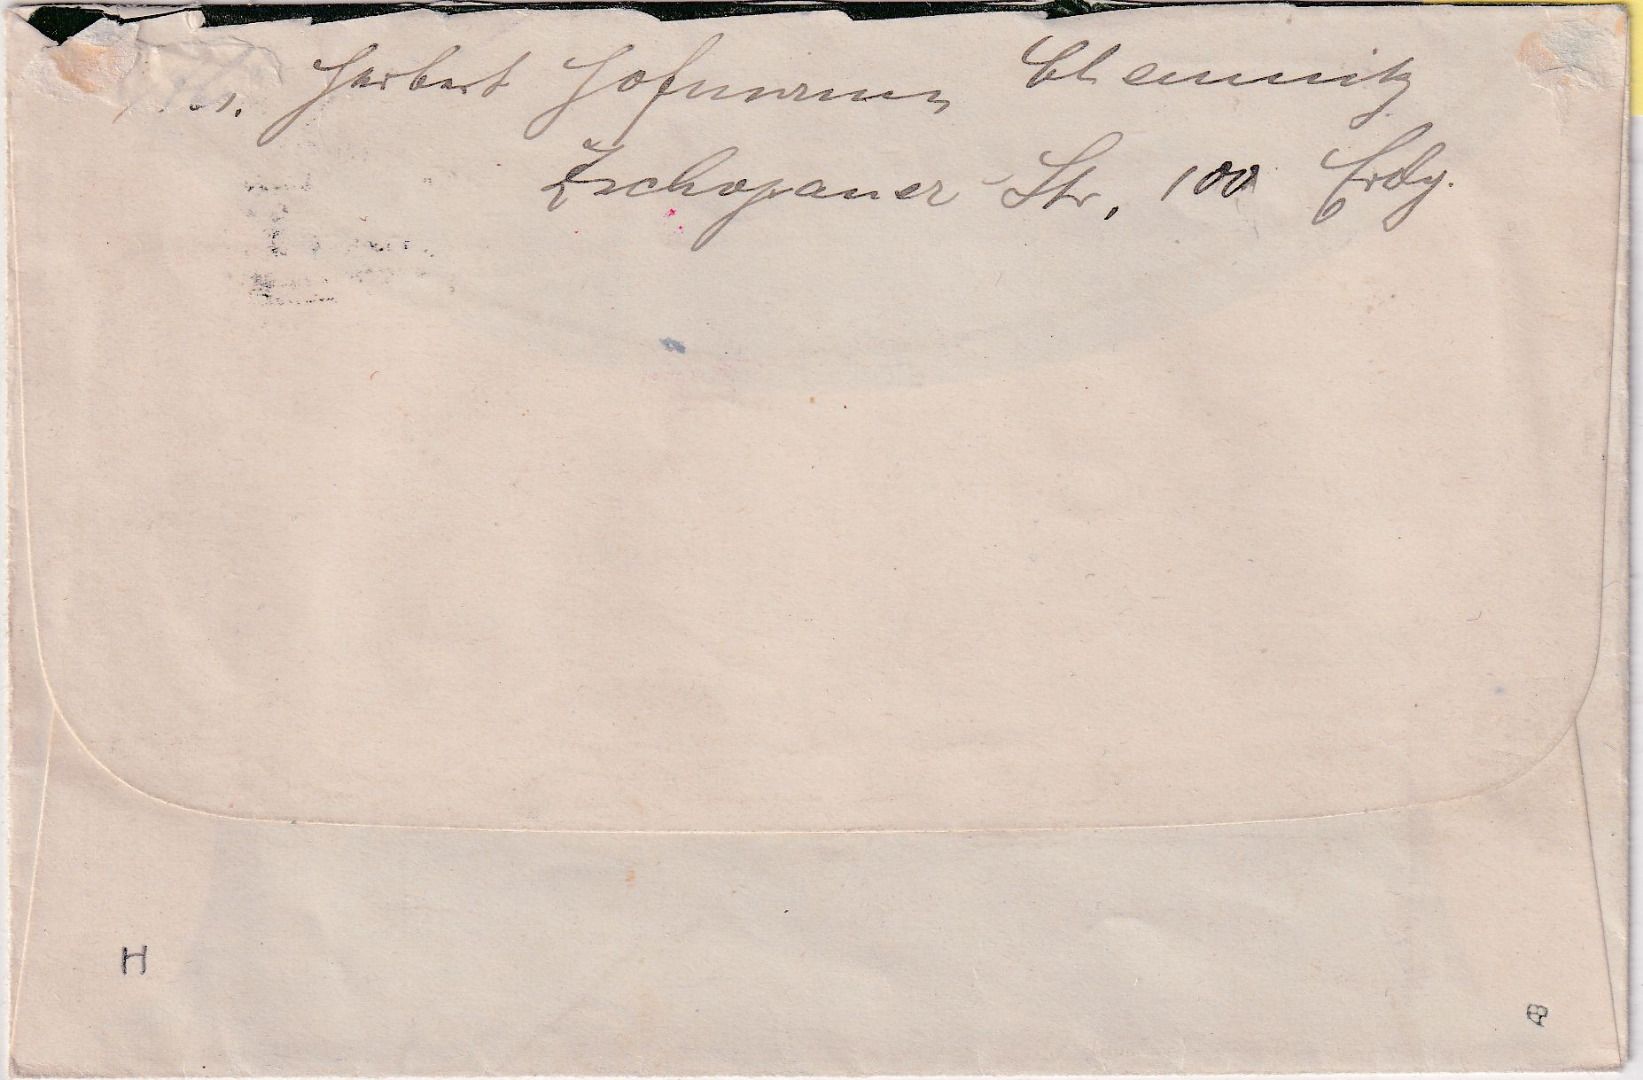 Herbert Hofmann Chemnitz
Zschopauer Str. 100 Erdg.
H